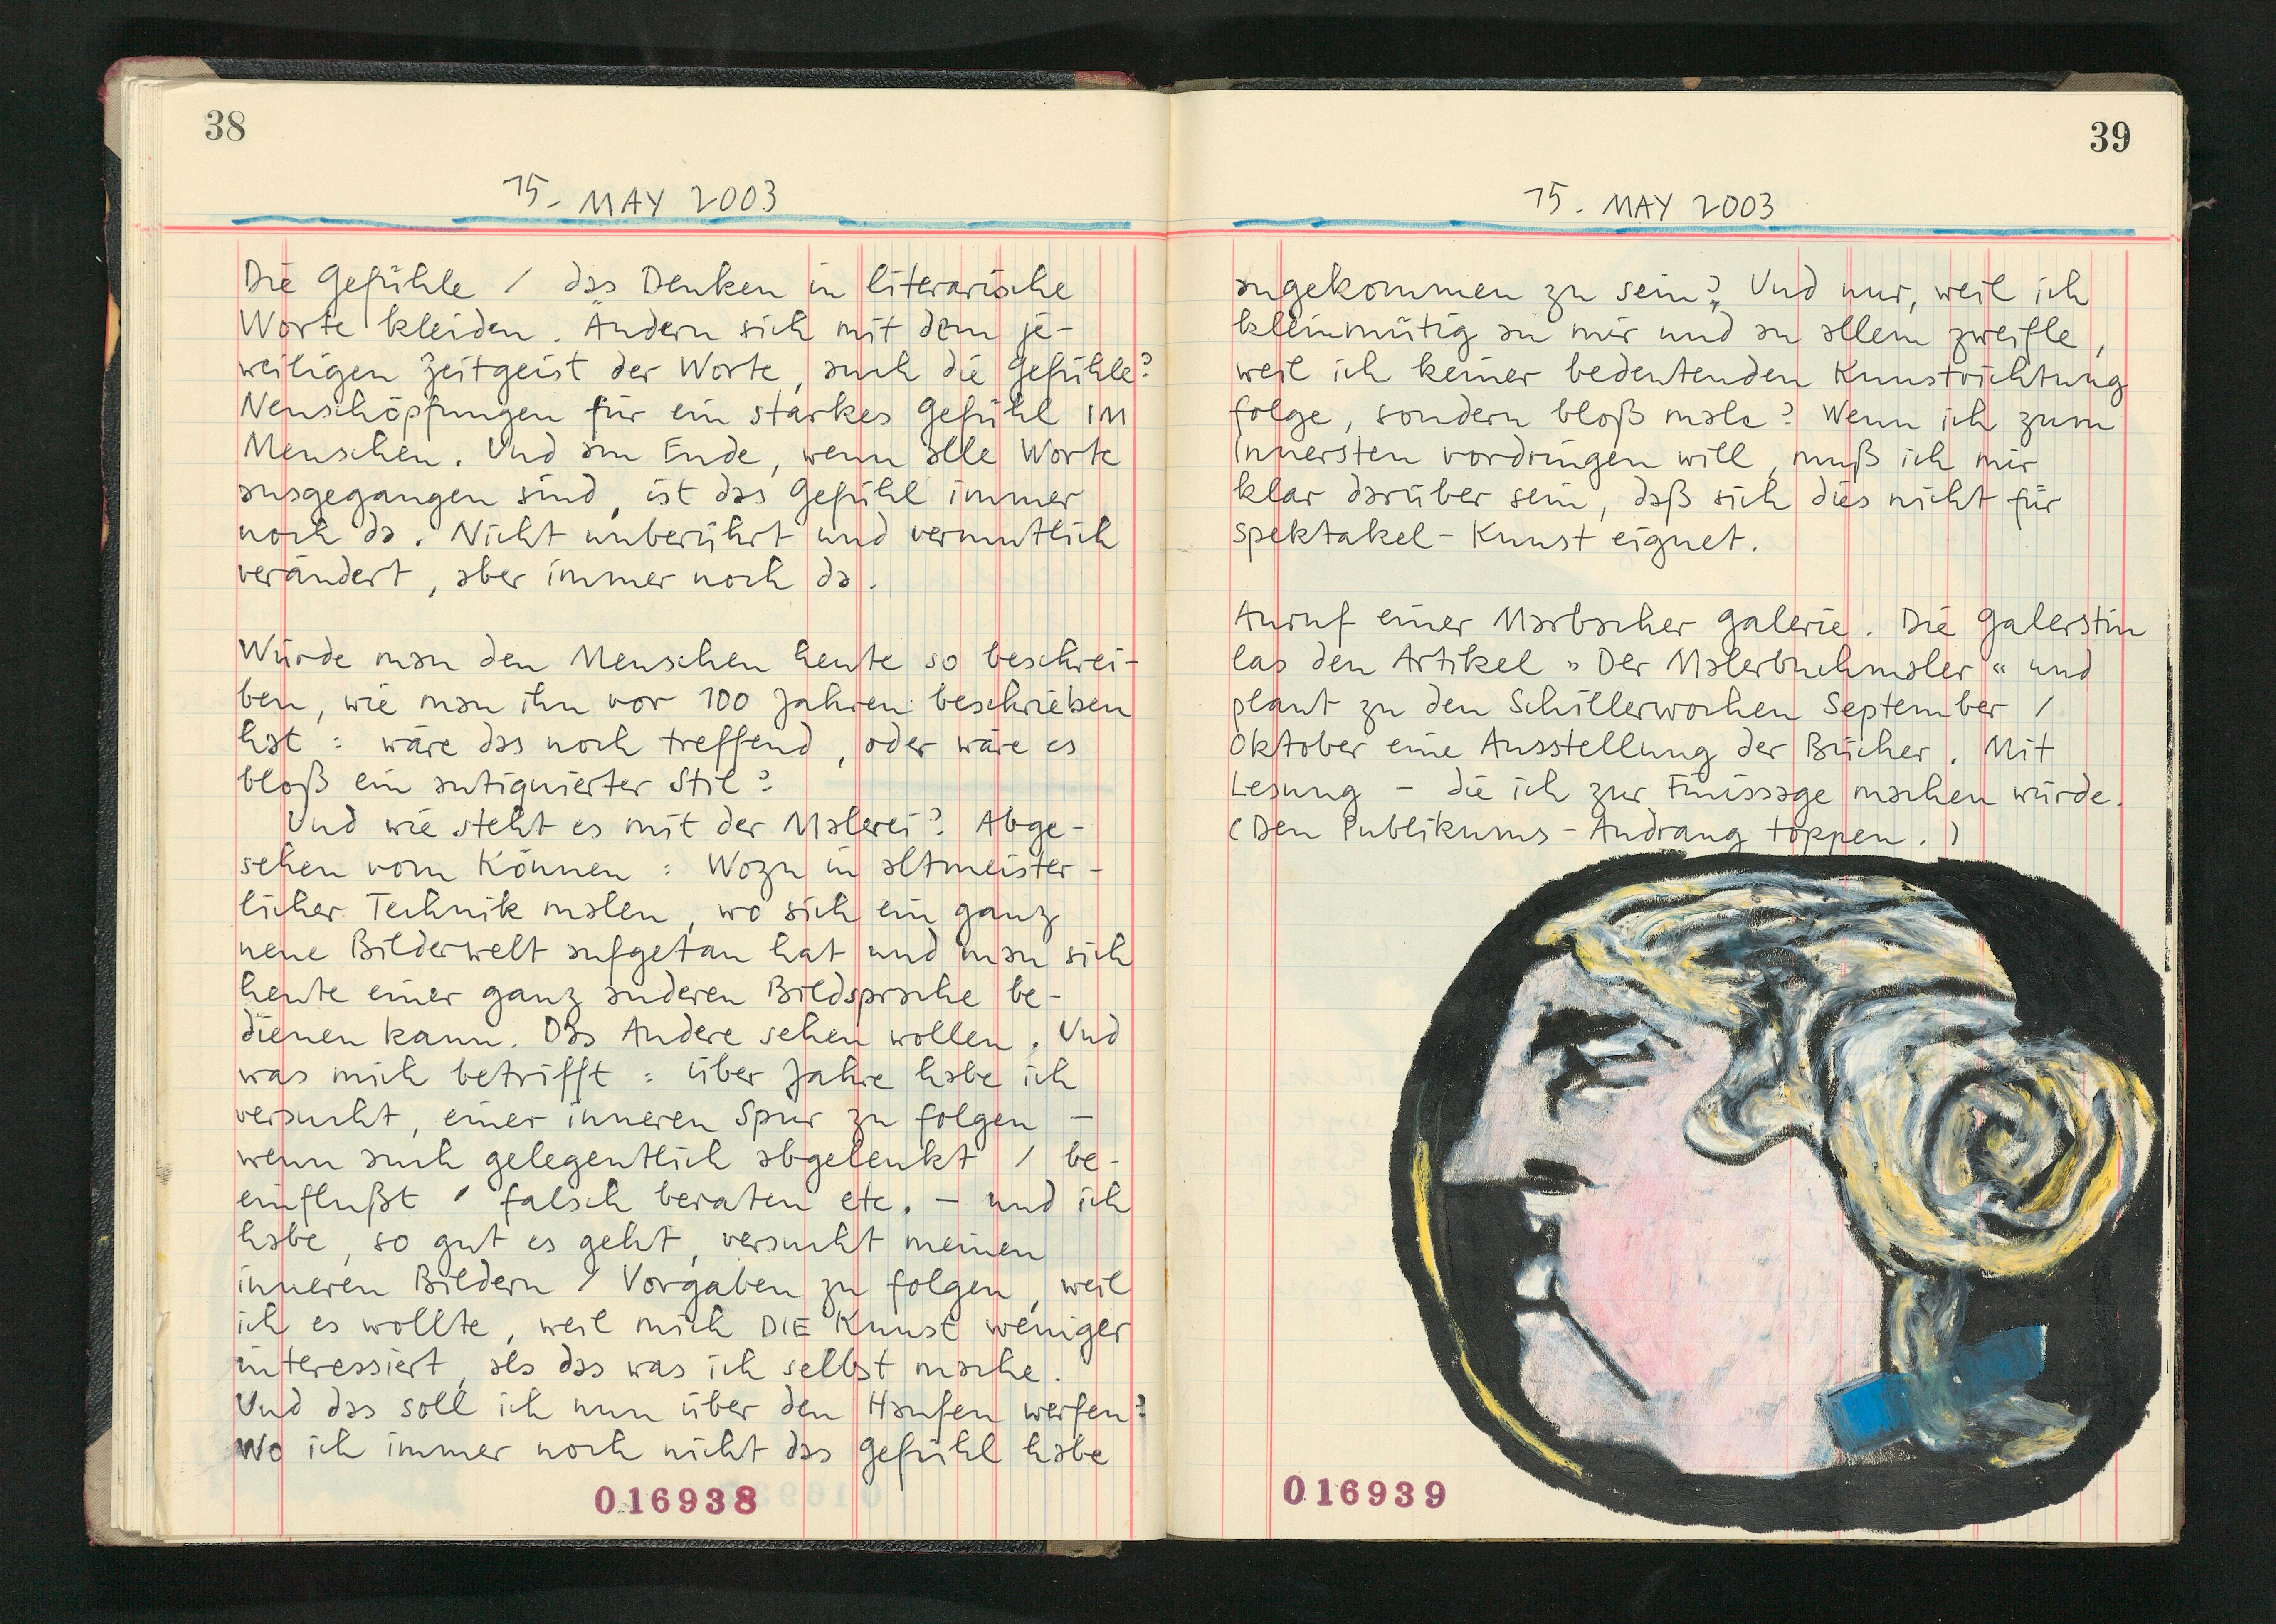 38
15. MAY 2003
Die Gefühle / das Denken in literarische
Worte kleiden. Ändern sich mit dem je-
weiligen Zeitgeist der Worte, auch die Gefühle?
Neuschöpfungen für ein starkes Gefühl IM
Menschen. Und am Ende, wenn alle Worte
ausgegangen sind, ist das Gefühl immer
noch da. Nicht unberührt und vermutlich
verändert, aber immer noch da.
Würde man den Menschen heute so beschrei-
ben, wie man ihn vor 100 Jahren beschrieben
hat: wäre das noch treffend, oder wäre es
bloß ein antiquierter Stil?
Und wie steht es mit der Malerei? Abge-
sehen vom Können: Wozu in altmeister-
licher Technik malen, wo sich ein ganz
neue Bilderwelt aufgetan hat und man sich
heute einer ganz anderen Bildsprache be-
dienen kann. Das Andere sehen wollen. Und
was mich betrifft: über Jahre habe ich
versucht, einer inneren Spur zu folgen –
wenn auch gelegentlich abgelenkt / be-
einflußt / falsch beraten etc. – und ich
habe, so gut es geht, versucht meinen
inneren Bildern / Vorgaben zu folgen, weil
ich es wollte, weil mich DIE Kunst weniger
interessiert, als das was ich selbst mache.
Und das soll ich nun über den Haufen werfen?
Wo ich immer noch nicht das Gefühl habe
016938
39
15. MAY 2003
angekommen zu sein? Und nur, weil ich
kleinmütig an mir und an allem zweifle,
weil ich keiner bedeutenden Kunstrichtung
folge, sondern bloß male? Wenn ich zum
Innersten vordringen will, muß ich mir
klar darüber sein, daß sich dies nicht für
Spektakel-Kunst eignet.
Anruf einer Marbacher Galerie. Die Galerstin
las den Artikel "Der Malerbuchmaler" und
plant zu den Schillerwochen September /
Oktober eine Ausstellung der Bücher. Mit
Lesung – die ich zur Finissage machen würde.
(Den Publikums-Andrang toppen.)
016939